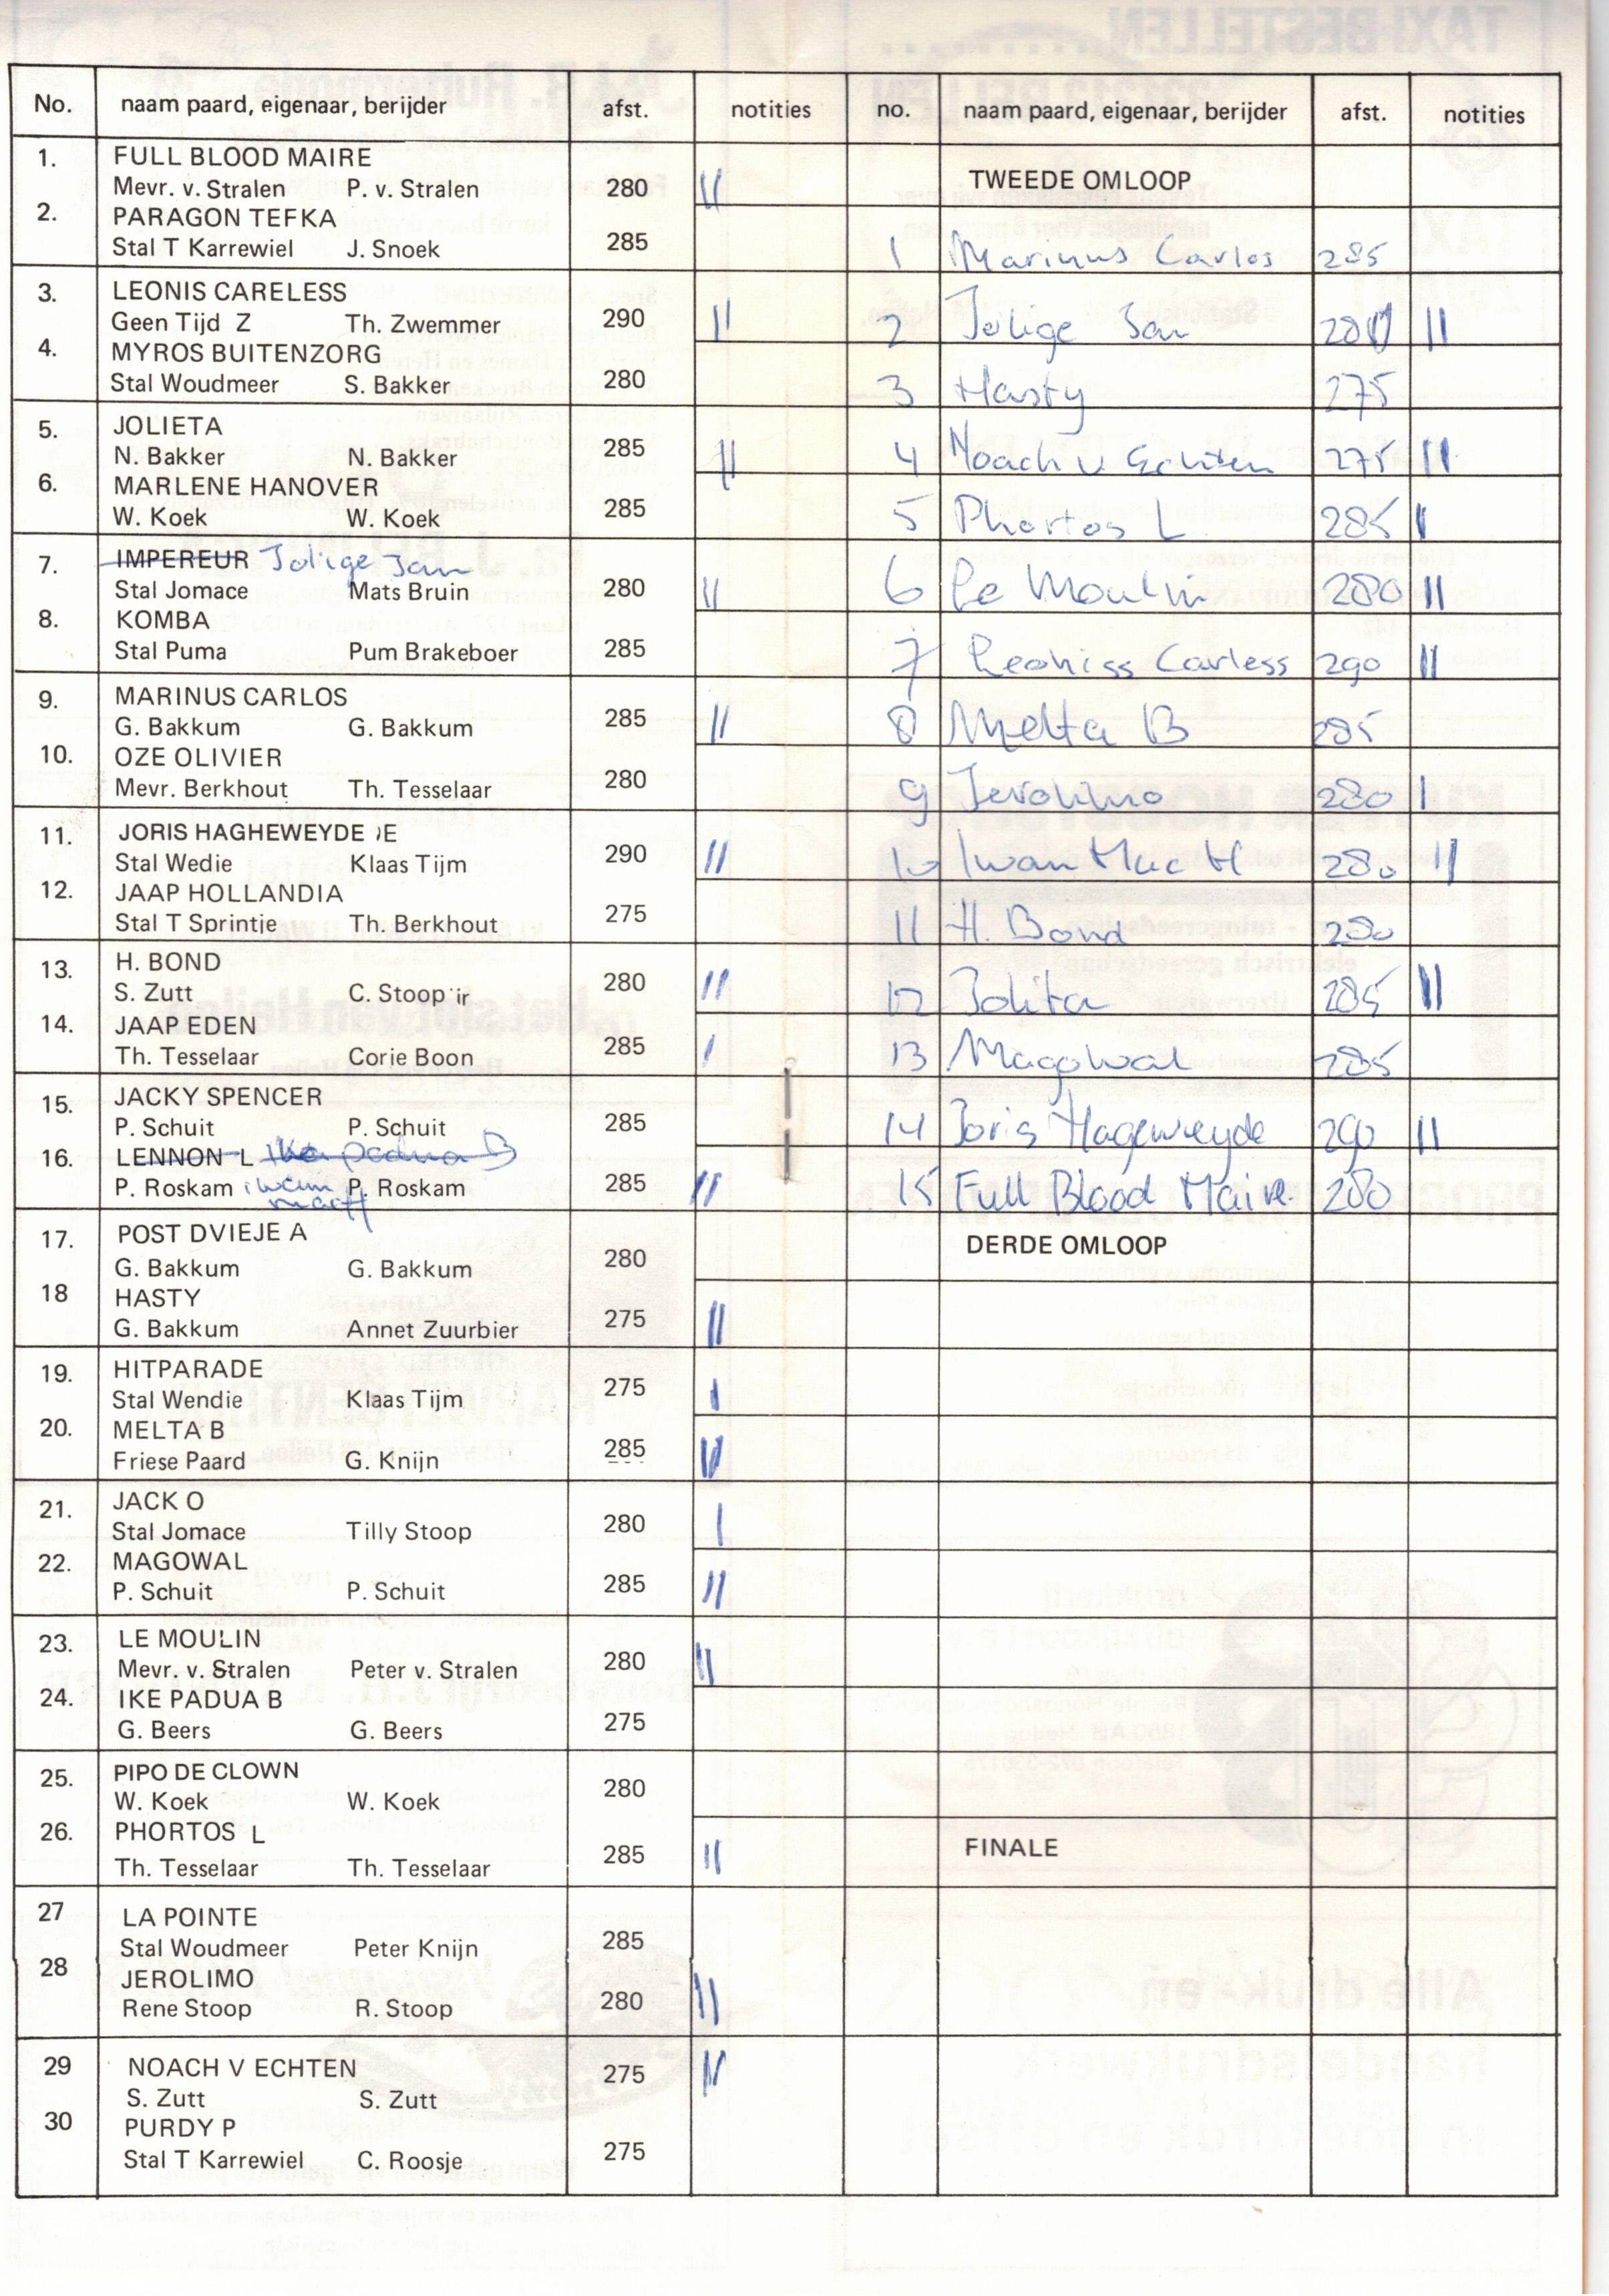 No. naam paard, eigenaar, berijder afst. notities
1. FULL BLOOD MAIRE
Mevr. v. Stralen P. v. Stralen 280 II
2. PARAGON TEFKA
Stal T Karrewiel J. Snoek 285
3. LEONIS CARELESS
Geen Tijd Z Th. Zwemmer 290 II
4. MYROS BUITENZORG
Stal Woudmeer S. Bakker 280
5. JOLIETA
N. Bakker N. Bakker 285 II
6. MARLENE HANOVER
W. Koek W. Koek 285
7. IMPEREUR Jolige Jan
Stal Jomace Mats Bruin 280 II
8. KOMBA
Stal Puma Pum Brakeboer 285
9. MARINUS CARLOS
G. Bakkum G. Bakkum 285 II
10. OZE OLIVIER
Mevr. Berkhout Th. Tesselaar 280
11. JORIS HAGHEWEYDE
Stal Wedie Klaas Tijm 290 II
12. JAAP HOLLANDIA
Stal T Sprintje Th. Berkhout 275
13. H. BOND
S. Zutt C. Stoop 280 II
14. JAAP EDEN
Th. Tesselaar Corie Boon 285 I
15. JACKY SPENCER
P. Schuit P. Schuit 285
16. LENNON L Ike padua B
P. Roskam iwan P. Roskam 285 II
17. POST DVIEJE A
G. Bakkum G. Bakkum 280
18 HASTY
G. Bakkum Annet Zuurbier 275 II
19. HITPARADE
Stal Wendie Klaas Tijm 275 I
20. MELTA B
Friese Paard G. Knijn 285 II
21. JACK O
Stal Jomace Tilly Stoop 280 I
22. MAGOWAL
P. Schuit P. Schuit 285 II
23. LE MOULIN
Mevr. v. Stralen Peter v. Stralen 280 II
24. IKE PADUA B
G. Beers G. Beers 275
25. PIPO DE CLOWN
W. Koek W. Koek 280
26. PHORTOS L
Th. Tesselaar Th. Tesselaar 285 II
27 LA POINTE
Stal Woudmeer Peter Knijn 285
28 JEROLIMO
Rene Stoop R. Stoop 280 II
29 NOACH V ECHTEN 275 II
S. Zutt S. Zutt
30 PURDY P
Stal T Karrewiel C. Roosje 275
no. naam paard, eigenaar, berijder afst. notities
TWEEDE OMLOOP
1 Marinus Carlos 285
2 Jolige Jan 280 II
3 Hasty 275
4 Noach v. Echten 275 II
5 Phortos L 285 I
6 Le Moulin 280 II
7 Leoniss Carless 290 II
8 Melta B 285
9 Jerolimo 280 I
10 Iwan Mac H 280 II
11 H. Bond 280
12 Jolita 285 II
13 Magowal 285
14 Joris Hageweyde 290 II
15 Full Blood Maire. 280
DERDE OMLOOP
FINALE